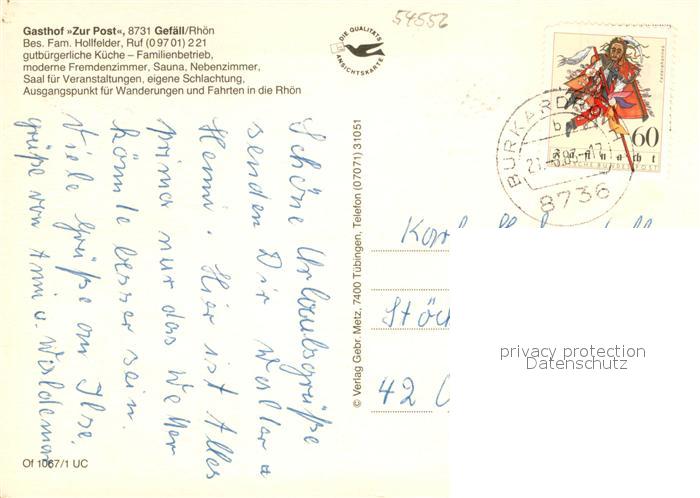 Gasthof »Zur Post«, 8731 Gefäll/Rhön
Bes. Fam. Hollfelder, Ruf (0 97 01) 2 21
gutbürgerliche Küche – Familienbetrieb,
moderne Fremdenzimmer, Sauna, Nebenzimmer,
Saal für Veranstaltungen, eigene Schlachtung,
Ausgangspunkt für Wanderungen und Fahrten in die Rhön
54556
DIE QUALITÄTS
ANSICHTSKARTE
Federahannes
60
Fastnacht
DEUTSCHE BUNDESPOST
BURKARDR
b
8736
Schöne Urlaubsgrüße
senden Dir Walter u
Henni. Hier ist Alles
prima nur das Wetter
könnte besser sein.
Viele Grüße an Ilse.
grüße von Anni u. Waldemar
© Verlag Gebr. Metz, 7400 Tübingen, Telefon (07071) 31051
Stöc
42
privacy protection
Datenschutz
Of 1067/1 UC